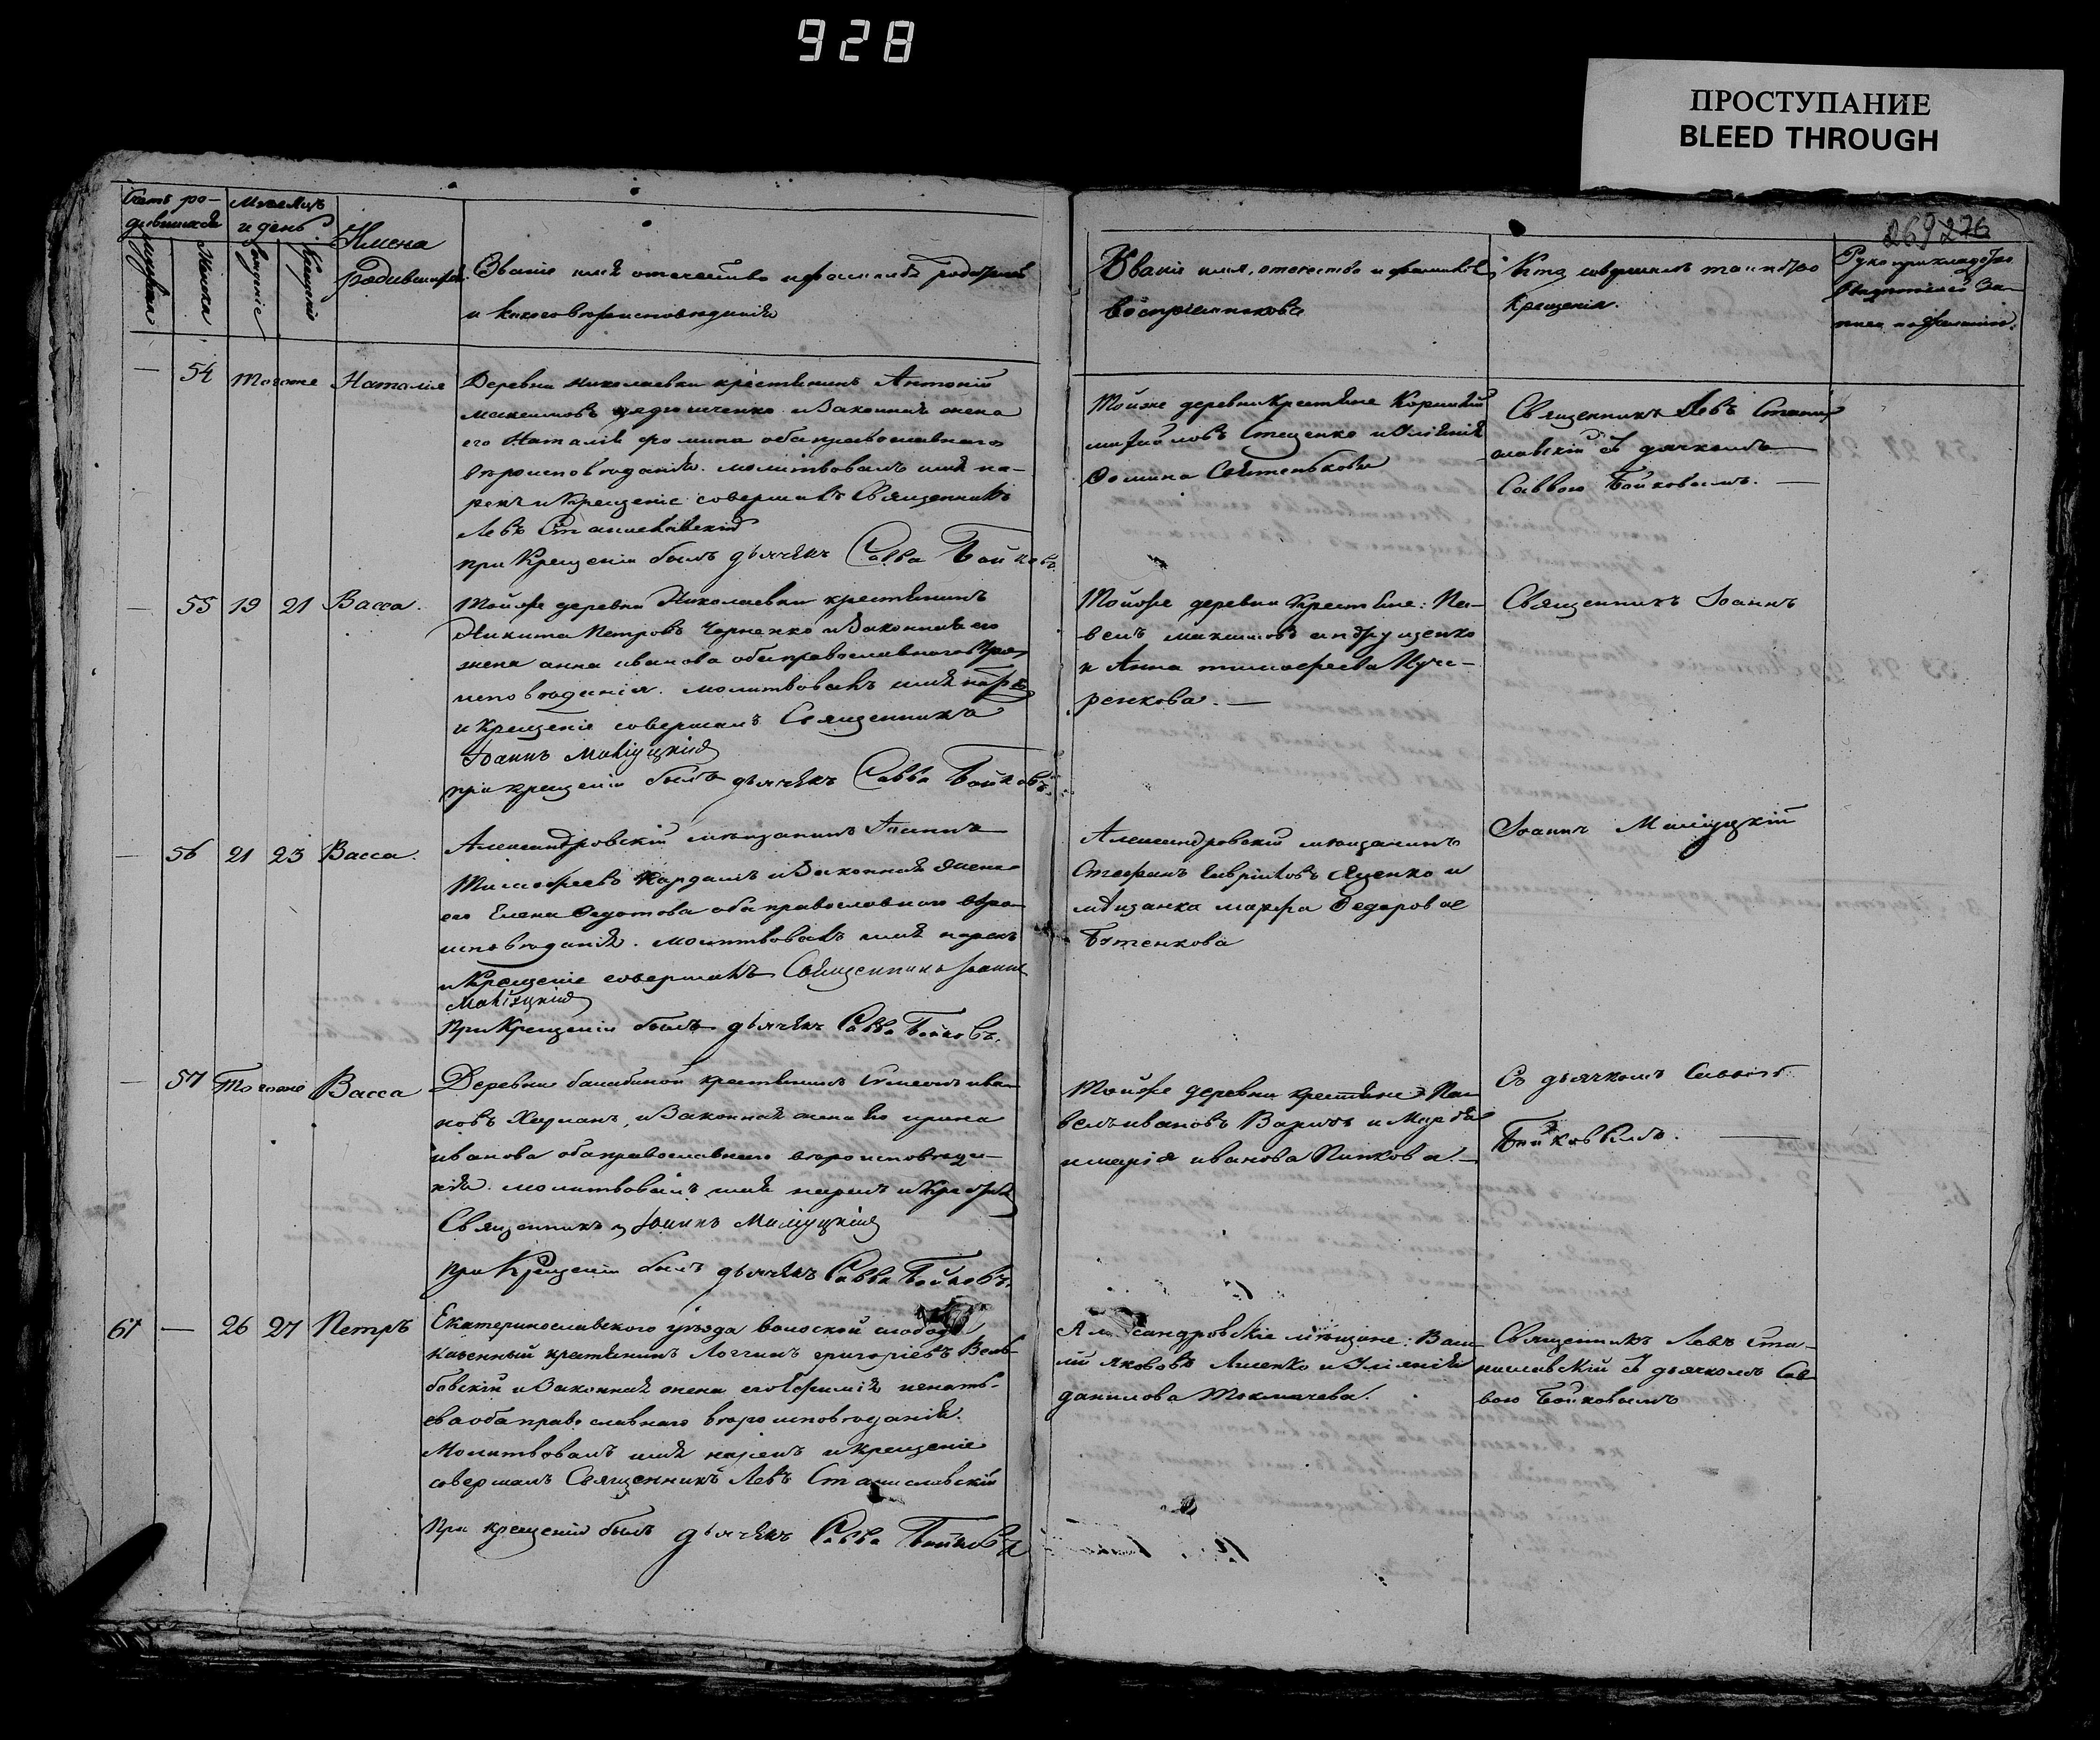 928
ПРОСТУПАНИЕ
BLEED THROUGH
269 276
Счетъ ро-
дившихся
Мѣсяцъ
и день
Имена
родившихся.
Званіе имя отечество и фамилія родителей
и какого вѣроисповѣданія
Званіе имя, отечество и фамилія
воспріемниковъ
Кто совершалъ таинство
Крещенія.
Рукоприкладство
свидѣтелей за-
писи по желанію.
Мужеска
Женска
Рожденіе
Крещеніе
— 54 Тогоже Наталія
Деревни Николаевки крестьянинъ Антоній
Максимовъ и законная жена
его Наталія Фомина оба православнаго
вѣроисповѣданія. молитвовалъ имя на-
рекъ и Крещеніе совершалъ Священникъ
Левъ Станиславскій
при Крещеніи былъ дьячекъ Савва Бойковъ
Тойже деревни Крестьяне Корнилій
Михайловъ Стеценко и Юліанія
Фомина
Священникъ Левъ Станис
лавскій съ дьячкомъ
Саввою Бойковымъ. —
— 55 19 21 Васса.
Тойже деревни Николаевки крестьянинъ
Никита Петровъ Черненко и законная его
жена Анна Иванова оба православнаго вѣро
исповѣданія. молитвовалъ имя нарекъ
и крещеніе совершалъ Священникъ
Іоаннъ Малиуцкій
при крещеніи былъ дьячекъ Савва Бойковъ.
Тойже деревни Крестьяне: Па-
велъ Максимовъ Андрущенко
и Анна Тимофеева Куче-
ренкова. —
Священникъ Іоаннъ
— 56 21 23 Васса.
Александровскій мѣщанинъ Іоаннъ
Тимофеевъ Кардашъ и Законная жена
его Елена Федотова оба православнаго вѣро
исповѣданія. молитвовалъ имя нарекъ
и Крещеніе совершалъ Священникъ Іоаннъ
Малиуцкій
При Крещеніи былъ дьячекъ Савва Бойковъ.
Александровскій мѣщанинъ
Стефанъ Гавриловъ Яценко и
мѣщанка Марфа Федорова
Батенкова
Іоаннъ Малиуцкій
— 57 Тогоже Васса
Деревни Балабиной крестьянинъ Симеонъ Ива
новъ и Законная жена его Ирина
Иванова оба православнаго вѣроисповѣда-
нія. молитвовалъ имя нарекъ и Крестилъ
Священникъ Іоаннъ Малиуцкій
при Крещеніи былъ дьячекъ Савва Бойковъ.
Тойже деревни крестьяне: Па
велъ Ивановъ
и Марія Иванова Попкова. —
Съ дьячкомъ Саввою
Бойковымъ. —
61 — 26 27 Петръ
Екатеринославскаго уѣзда Волоской слободы
казенный крестьянинъ Логгинъ Григоріевъ Вели-
бовскій и Законная жена его Евфимія Игнать-
ева оба православнаго вѣроисповѣданія.
Молитвовалъ имя нарекъ и крещеніе
совершалъ Священникъ Левъ Станиславскій
При крещеніи былъ дьячекъ Савва Бойковъ
Александровскіе мѣщане: Васи
лій Яковлевъ Лисенко и Уліянія
Данилова Токмачева.
Священникъ Левъ Ста-
ниславскій съ дьячкомъ Сав
вою Бойковымъ